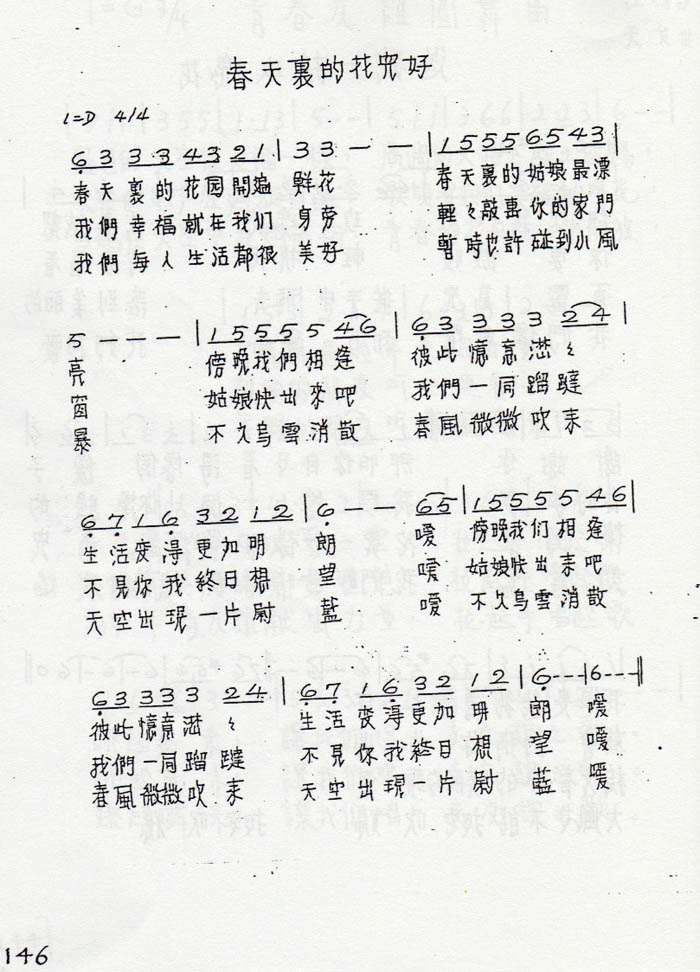 春天裏的花兒好
1=D 4/4
63 33 43 21 | 33 — — | 1555 6543 |
春天裏的花园開遍 鮮花 春天裏的姑娘最漂
我們幸福就在我们 身旁 輕々敲畵你的家門
我們每人生活都很 美好 暫時也許碰到小風
5 — — | 1555 5 46 | 63 333 24 |
亮 傍晚我們相逢 彼此憶意滋々
窗 姑娘快出來吧 我們一同蹓躂
暴 不久烏雲消散 春風微微吹来
6716 32 12 | 6 — — 65 | 1555 5 46 |
生活变得更加明 朗 嗳 傍晚我们相逢
不見你我終日想 望 嗳 姑娘快出来吧
天空出現一片尉 藍 嗳 不久烏雲消散
63 333 24 | 6716 32 12 | 6---|6---||
彼此憶意滋々 生活变得更加明 朗 嗳
我們一同蹓躂 不見你我終日想 望 嗳
春風微微吹来 天空出現片尉 藍 嗳
146